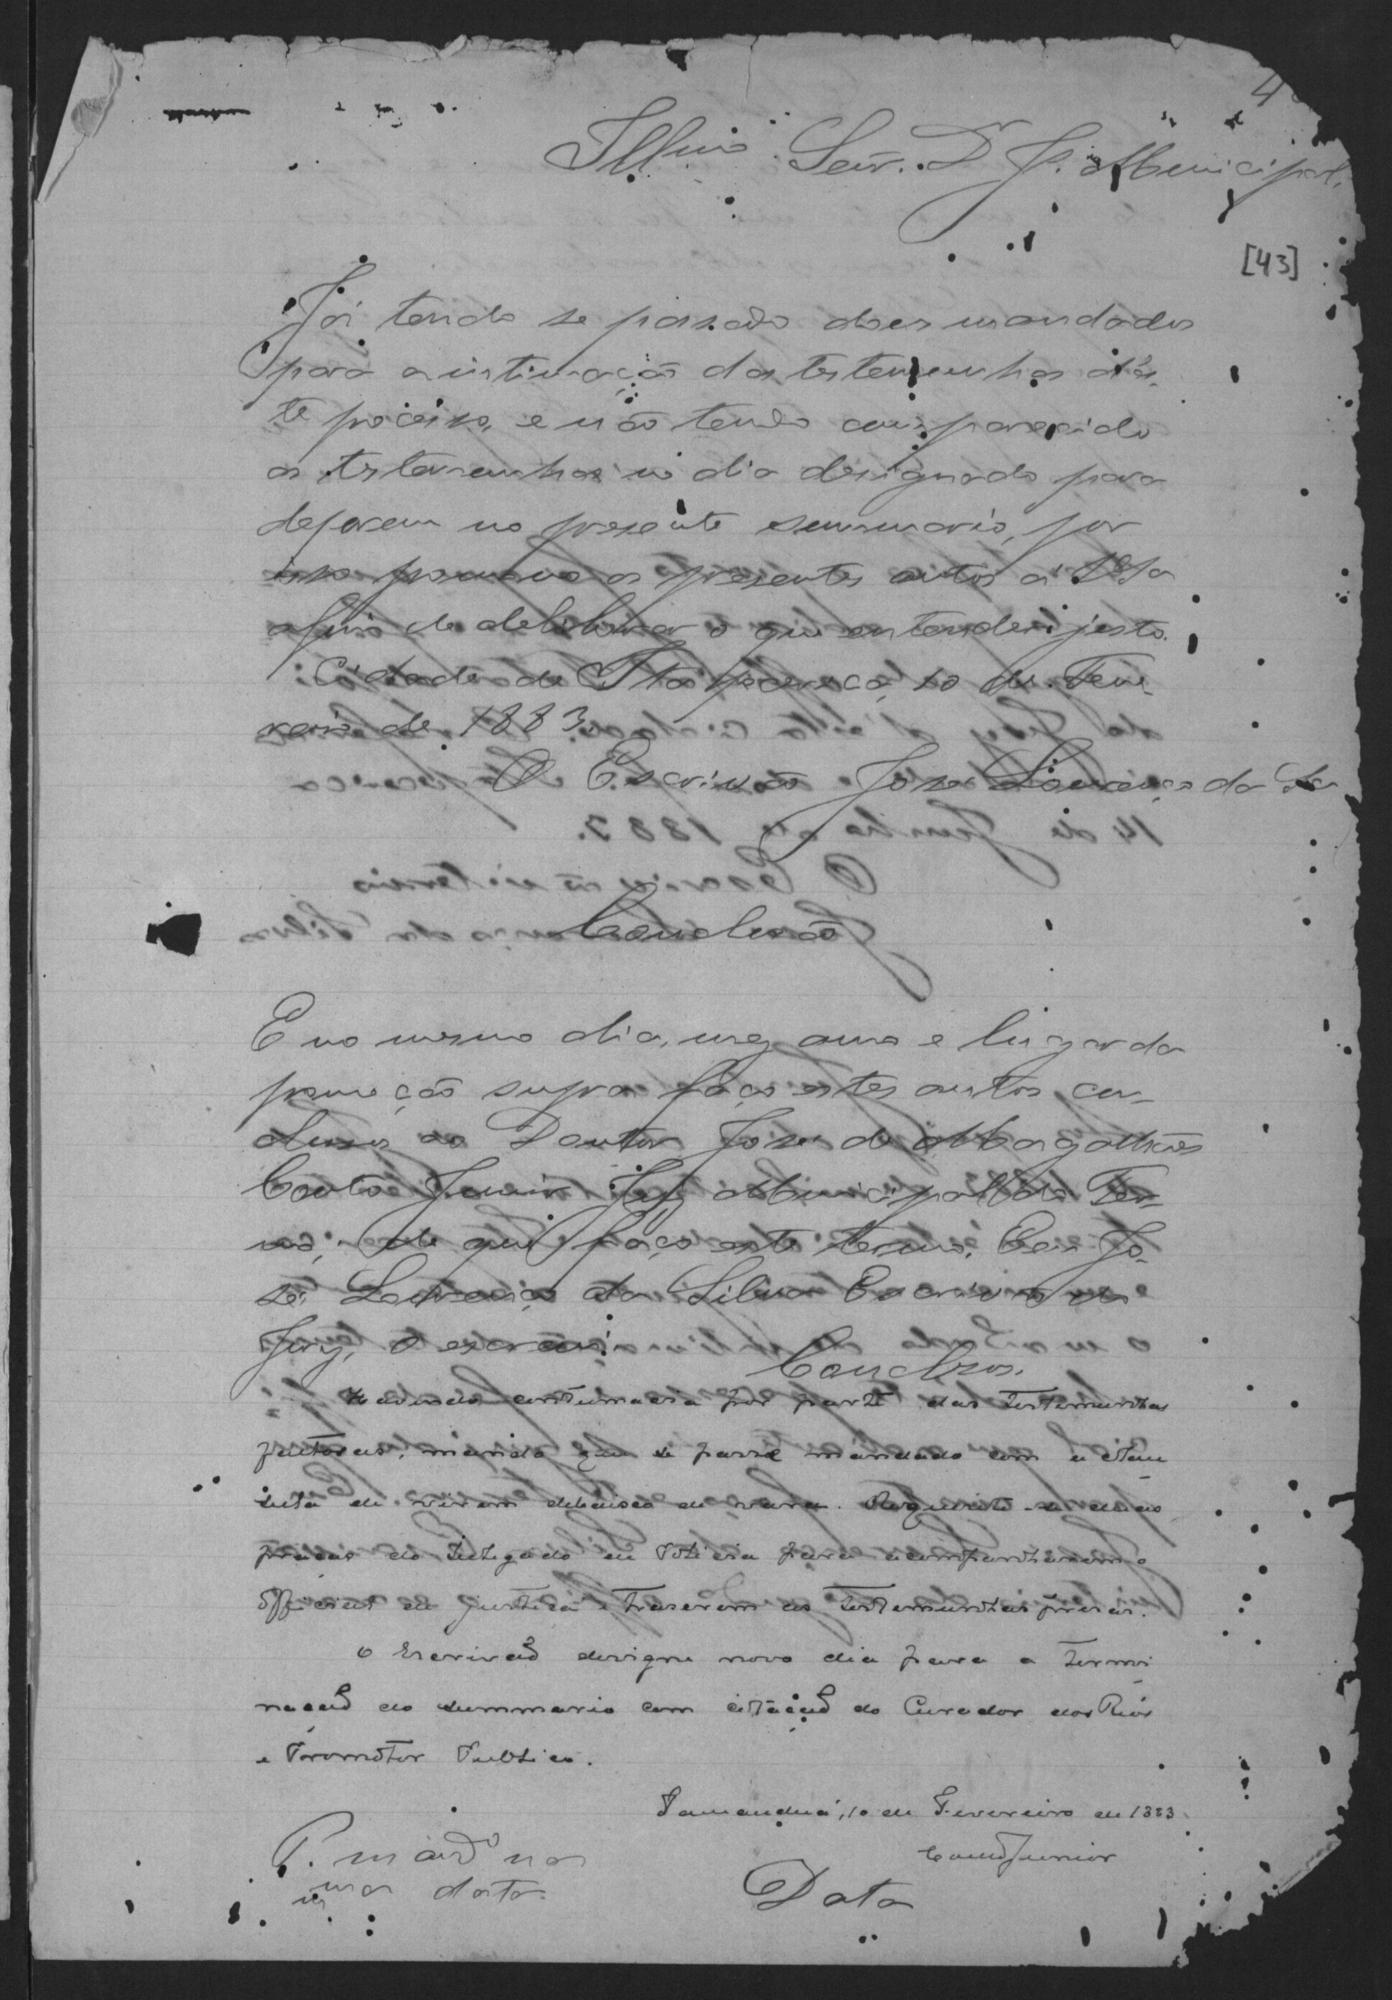 4
Illmo Senr. Dr J. Municipal.
[43]
Já tendo se passado dois mandados
para a intimação das testemunhas d'es-
te processo, e não tendo comparecido
as testemunhas no dia designado para
deporem no presente summario, por
isso promovo os presentes autos á VSa
afim de deliberar o que entender justo.
Cidade de Itapecerica 10 de Feve-
reiro de 1883.
O Escrivão José Lourenço da Sa
Conclusão
E no mesmo dia, mez anno e lugar da
promoção supra faço estes autos con-
clusos ao Doutor José de Magalhães
Couto Junior Juiz Municipal do Ter-
mo, de que faço este termo. Eu Jo-
sé Lourenço da Silva Escrivão do
Jury, o escrevi.
Conclsos.
Havendo contumacia por parte das testemunhas
faltosas, mando que se passe mandado com a clau
sula de virem debaixo de vara. Requisite-se duas
praças do Delegado de Policia para acompanharem o
Official de justiça e trazerem as testemunhas presas.
O Escrivão designe novo dia para a termi
nação do summario com citação do Curador dos Réos
e Promotor Publico.
Tamanduá, 10 de Fevereiro de 1883.
Couto Junior
P. mando na
mma data.
Data